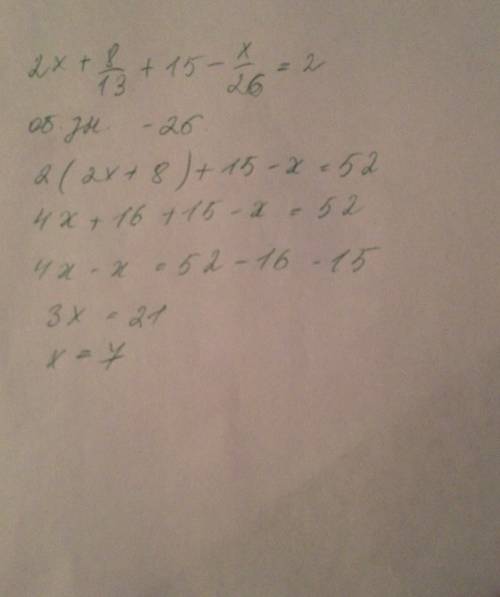 2x + 8/13 + 15 - x/26 = 2
об. зн. - 26
2(2x + 8) + 15 - x = 52
4x + 16 + 15 - x = 52
4x - x = 52 - 16 - 15
3x = 21
x = 7